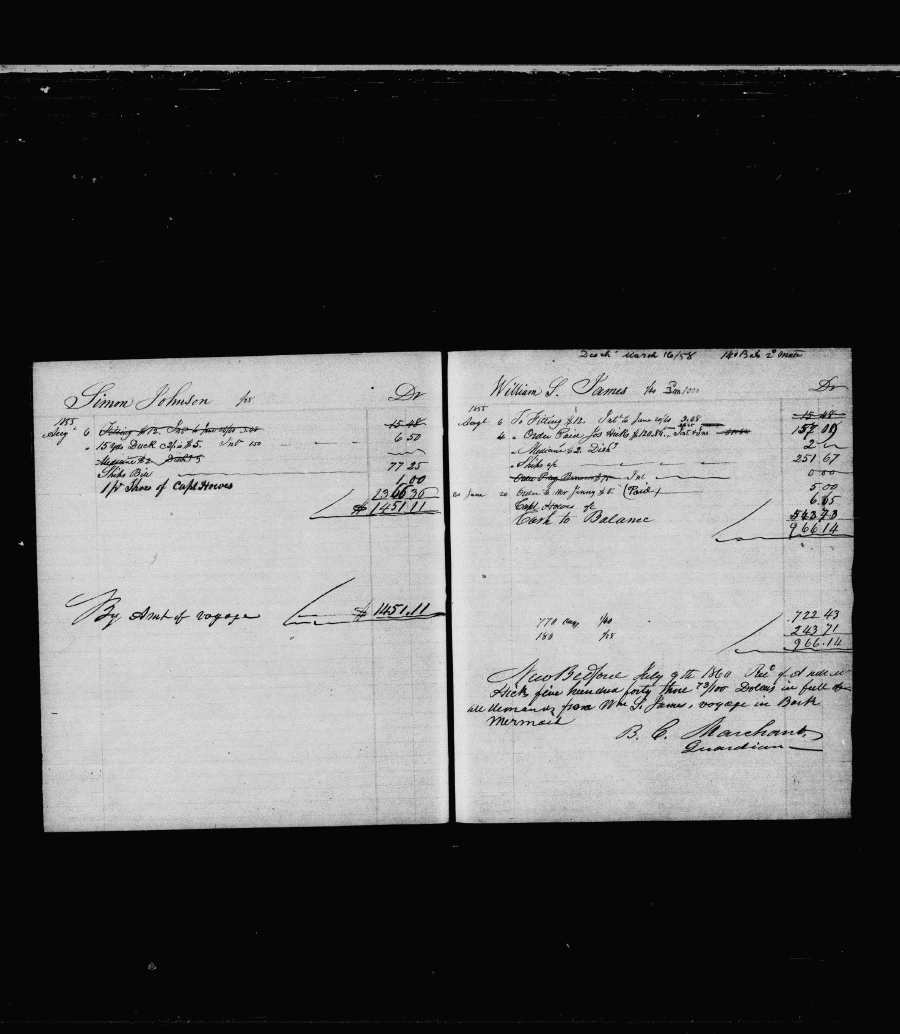 Simon Johnson 1/25 Dr
1855
Aug 6 Fitting $12. Int to June 10/60 3.08 15 48
" 15 yds Duck $5. Int 150 6 50
Medicine $2. Disch
Ships Bill 77 25
1/pr Shoes of Capt Howes 1.00
$1451.11
By Amt of voyage $1451.11
Desch March 16/58 140 Bob 2d Mate
William S. James 1/40 Dr
1855
Augt 6 To Fitting $12. Int to June 10/60 3.08 15 48
4 " Order Paid Jos Hicks $120.84 Int & Ins 157 09
" Medicine $2. Disch 2
" Ships a/c 251 67
Int 0 00
June 20 Order to Mr Jenny $5. (Paid) 5 00
Capt. Howes a/c 6.65
Cash to Balance 543 73
966 14
770 days 1/40 722 43
188 1/25 243 71
966.14
New Bedford July 9th 1860 Rec'd of Andrew
Hicks five hundred forty three 73/100 Dolars in full of
all demands from Wm S. James, voyage in Bark
Mermaid
B. C. Marchant
Guardian